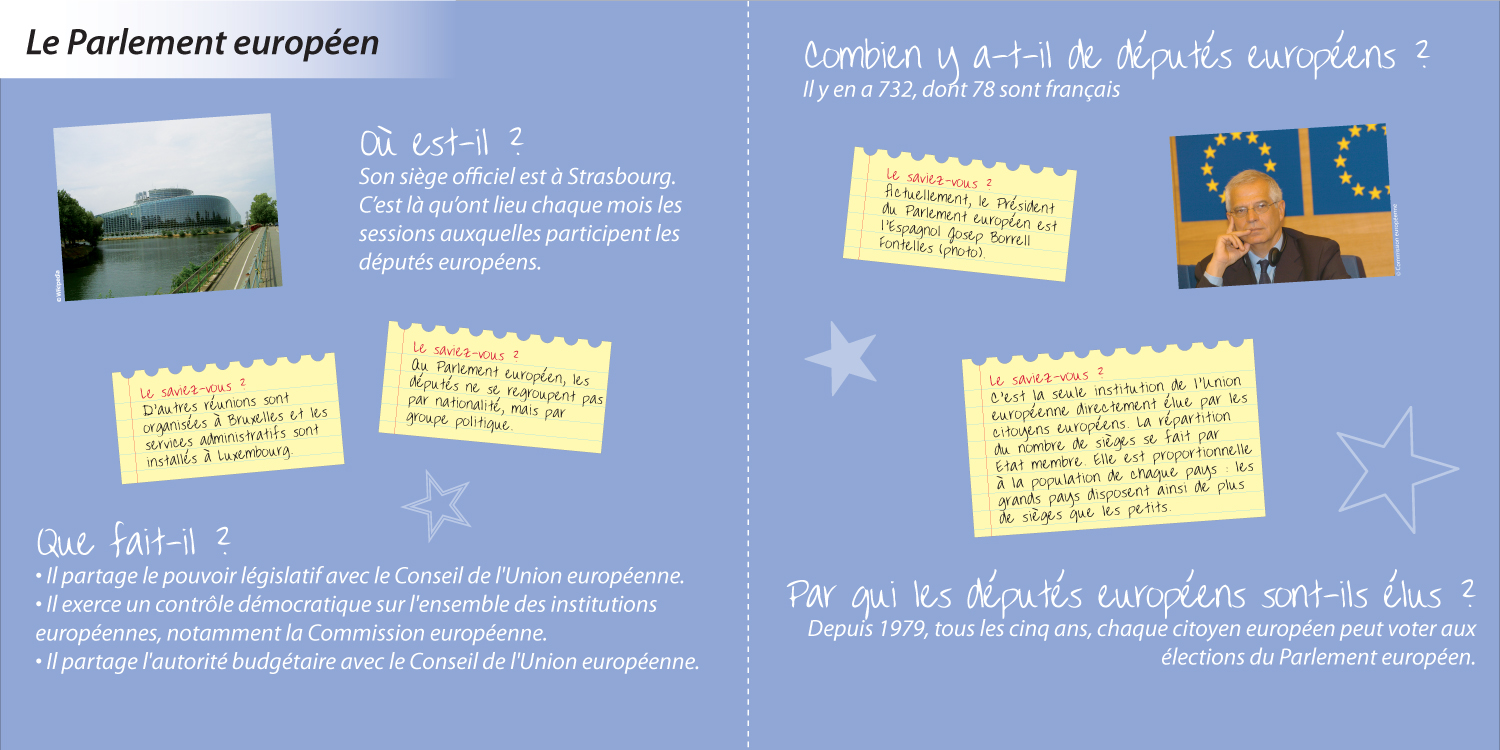 Le Parlement européen
Où est-il ?
Son siège officiel est à Strasbourg.
C'est là qu'ont lieu chaque mois les
sessions auxquelles participent les
députés européens.
© Wikipedia
Le saviez-vous ?
D'autres réunions sont
organisées à Bruxelles et les
services administratifs sont
installés à Luxembourg.
Le saviez-vous ?
Au Parlement européen, les
députés ne se regroupent pas
par nationalité, mais par
groupe politique.
Que fait-il ?
• Il partage le pouvoir législatif avec le Conseil de l'Union européenne.
• Il exerce un contrôle démocratique sur l'ensemble des institutions
européennes, notamment la Commission européenne.
• Il partage l'autorité budgétaire avec le Conseil de l'Union européenne.
Combien y a-t-il de députés européens ?
Il y en a 732, dont 78 sont français
Le saviez-vous ?
Actuellement, le Président
du Parlement européen est
l'Espagnol Josep Borrell
Fontelles (photo).
© Commission européenne
Le saviez-vous ?
C'est la seule institution de l'Union
européenne directement élue par les
citoyens européens. La répartition
du nombre de sièges se fait par
Etat membre. Elle est proportionnelle
à la population de chaque pays : les
grands pays disposent ainsi de plus
de sièges que les petits.
Par qui les députés européens sont-ils élus ?
Depuis 1979, tous les cinq ans, chaque citoyen européen peut voter aux
élections du Parlement européen.